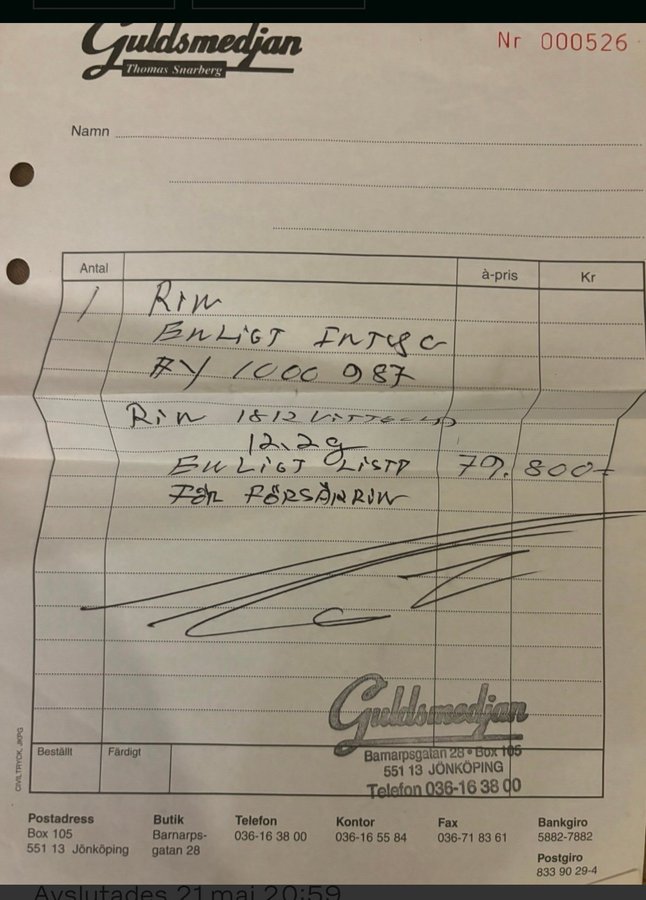 Guldsmedjan
Thomas Snarberg
Nr 000526
Namn
Antal à-pris Kr
1 RIN
ENLIGT
AV 1000 987
RIN 1812
12.2g
ENLIGT LISTD 79.800
FÖR FÖRSÄRRIN
Guldsmedjan
Barnarpsgatan 28 • Box 105
551 13 JÖNKÖPING
Telefon 036-16 38 00
CIVILTRYCK, JKPG
Beställt Färdigt
Postadress Butik Telefon Kontor Fax Bankgiro
Box 105 Barnarps- 036-16 38 00 036-16 55 84 036-71 83 61 5882-7882
551 13 Jönköping gatan 28
Postgiro
833 90 29-4
Avslutades 21 maj 20:59